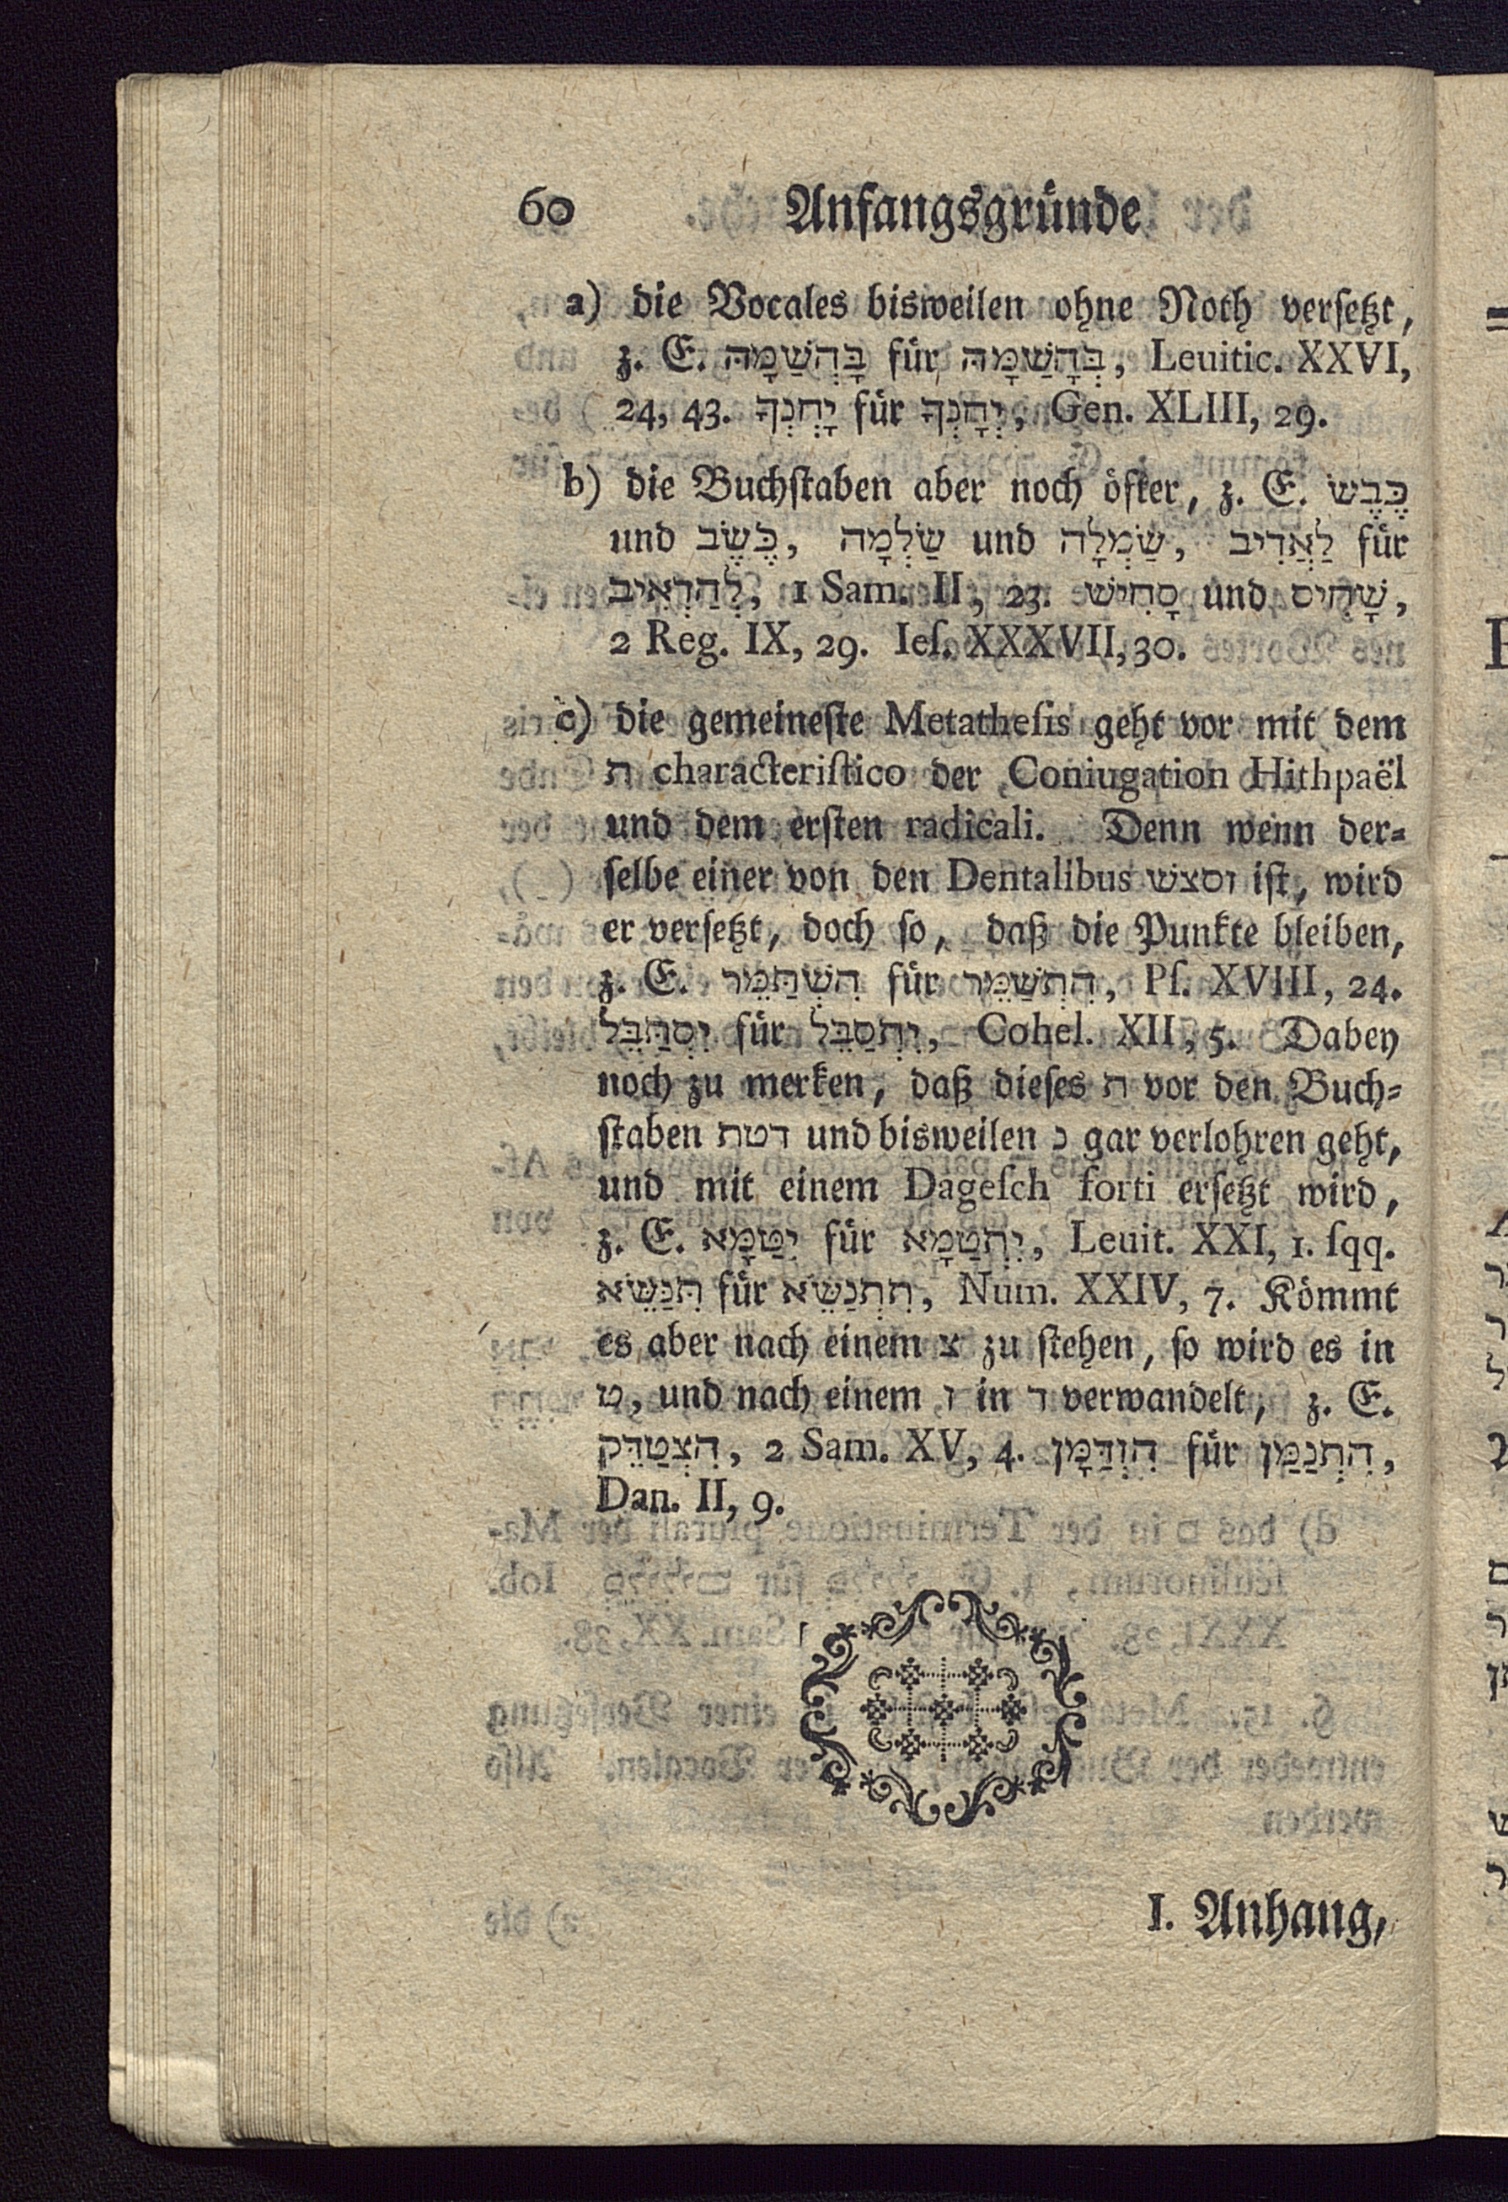 60 Anfangsgründe
a) die Vocales bisweilen ohne Noth versetzt,
z. E. בָּהְשַׁמָּהּ für בְּהָשַׁמָּהּ, Leuitic. XXVI,
24, 43. יָחְנְךָ für יְחָנְךָ, Gen. XLIII, 29.
b) die Buchstaben aber noch öfter, z. E. כֶּבֶשׂ
und כֶּשֶׂב, שַׂלְמָה und שַׂמְלָה, לַאֲדִיב für
לְהַדְאִיב, 1 Sam. II, 23. סָחִישׁ und שָׁחִיס,
2 Reg. IX, 29. Ieſ. XXXVII, 30.
c) die gemeineste Metatheſis geht vor mit dem
ת characteriſtico der Coniugation Hithpaël
und dem ersten radicali. Denn wenn der-
selbe einer von den Dentalibus זסצש ist, wird
er versetzt, doch so, daß die Punkte bleiben,
z. E. הִשְׁתַּמֵּר für הִתְשַׁמֵּר, Pſ. XVIII, 24.
יִסְתַּבֵּל für יִתְסַבֵּל, Cohel. XII, 5. Dabey
noch zu merken, daß dieses ת vor den Buch-
staben דטת und bisweilen נ gar verlohren geht,
und mit einem Dageſch forti ersetzt wird,
z. E. יִטַּמָּא für יִתְטַמָּא, Leuit. XXI, 1. ſqq.
תִּנַּשֵּׂא für תִתְנַשֵּׂא, Num. XXIV, 7. Kömmt
es aber nach einem צ zu stehen, so wird es in
ט, und nach einem ז in ד verwandelt, z. E.
הִצְטַדֵּק, 2 Sam. XV, 4. הִזְדַּמָּן für הִתְזַמַּן,
Dan. II, 9.
I. Anhang,